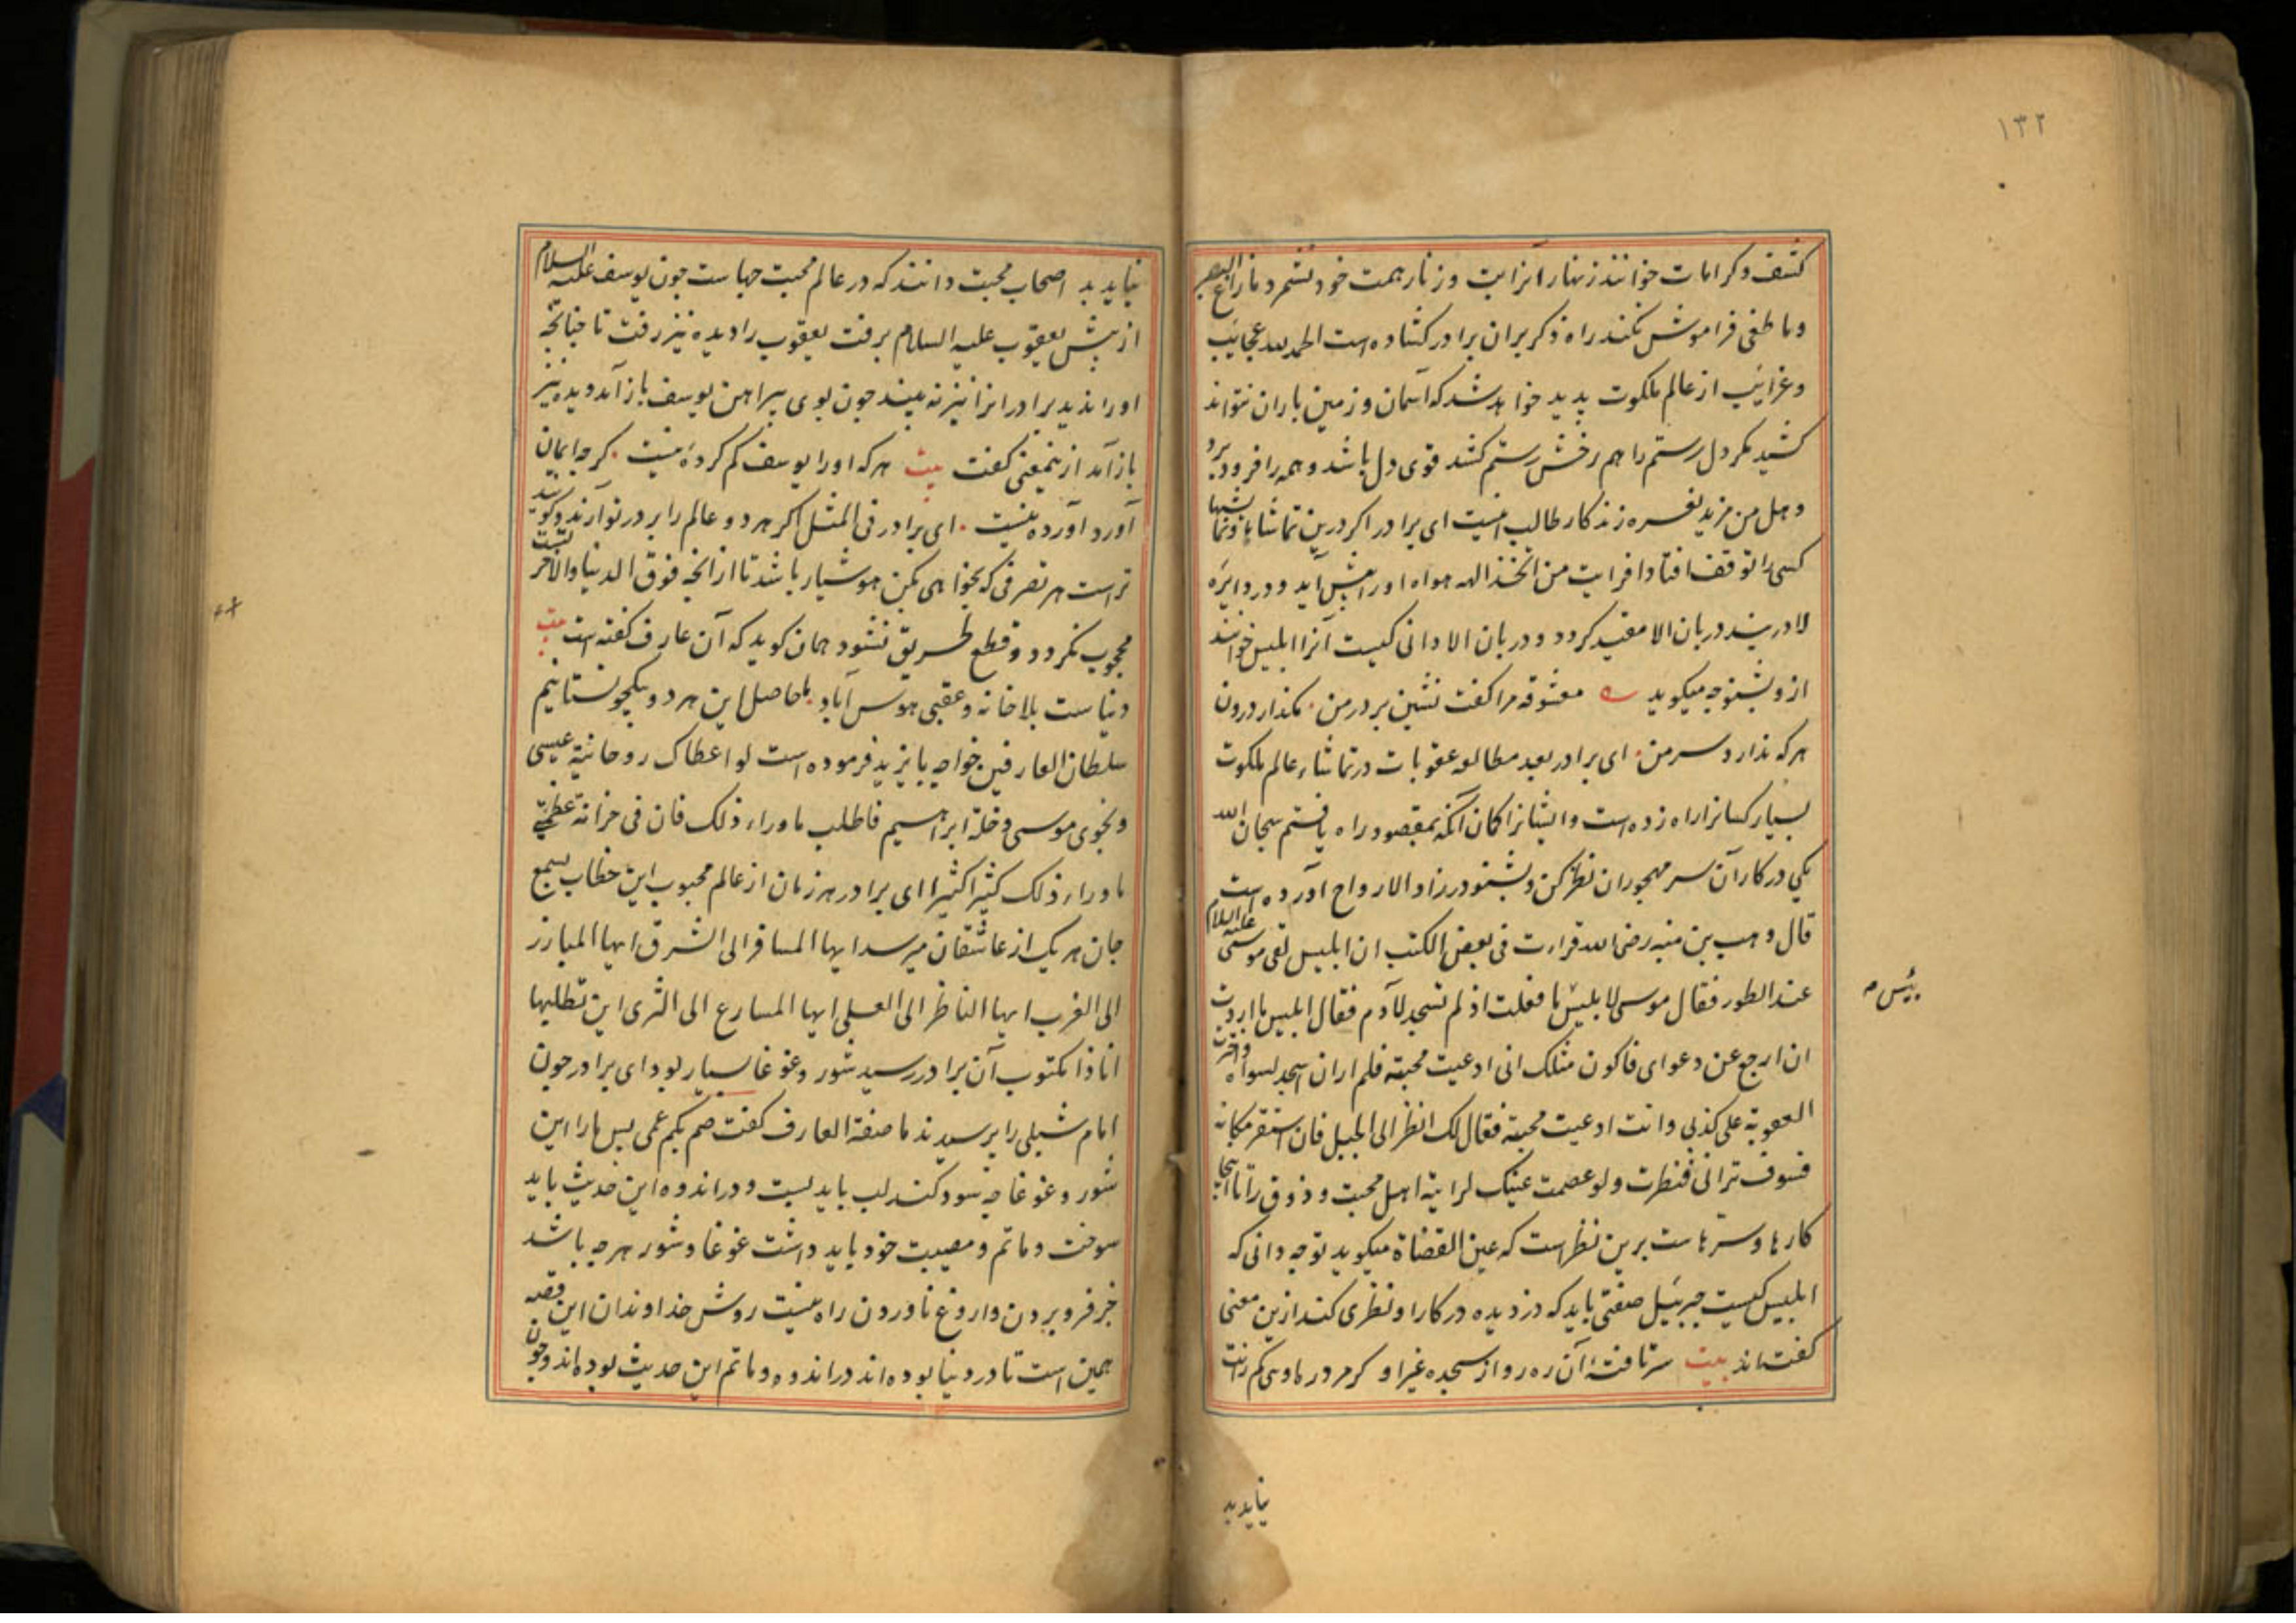 ۱۳۲
کشف و کرامات خوانند زنهار آنرا بت و زنار همت خود نشمرد ما زاغ البصر
وما طغی فراموش نکند راه ذکر بران برادر کشاده است الحمد لله عجایب
وغرایب از عالم ملکوت پدید خواهد شد که آسمان و زمین باران نتواند
کشید مگر دل رستم را هم رخش رستم کشد قوی دل باشد و همه را فرو برد
وهل من مزید نعره زند کار طالب اینست ای برادر اگر درین تماشاها و نمایشها
کسی را توقف افتاد افرایت من اتخذ الهه هواه او را پیش آید و در دایره
لا در بند دربان الا مقید گردد و دربان الا دانی کیست آنرا ابلیس خوانند
ازو بشنو چه میگوید معشوقه مرا گفت نشین بر در من مگذار درون
هرکه ندارد سر من ای برادر بعد مطالعه عقوبات در تماشاء عالم ملکوت
بسیار کسانرا راه زده است و ایشانرا گمان آنکه بمقصود راه یافتیم سبحان الله
یکی در کار آن سر مهجوران نظر کن و بشنو در زاد الارواح آورده است
قال وهب بن منبه رضی الله قراءت فی بعض الکتب ان ابلیس لقی موسی علیه السلام
عند الطور فقال موسی لابلیس ما فعلت اذ لم تسجد لآدم فقال ابلیس ما اردت
ان ارجع عن دعوای فاکون مثلک انی ادعیت محبته فلم ار ان اسجد لسواه واخترت
العقوبة علی کذبی وانت ادعیت محبته فقال لک انظر الی الجبل فان استقر مکانه
فسوف ترانی فنظرت ولو غمضت عینک لرایته اهل محبت و ذوق را تا اینجا
کارها و سرهاست برین نظر است که عین القضاة میگوید تو چه دانی که
ابلیس کیست جبرئیل صفتی باید که دزدیده در کار او نظری کند ازین معنی
گفته‌اند بیت سر تافته آن ره رو از سجده غیر او
بئس مه
نیاید بد
نیاید بد اصحاب محبت دانند که در عالم محبت جهاست چون یوسف علیه السلام
از پیش یعقوب علیه السلام برفت یعقوب را دیده نیز رفت تا چنانچه
او را ندید برادرانرا نیز نه بیند چون بوی پیراهن یوسف باز آمد دیده نیز
باز آمد ازینمعنی گفت بیت هر که او را یوسف گم کرده نیست گرچه ایمان
آورد آورده نیست ای برادر فی المثل اگر هر دو عالم را بر در تو آرند و گویند
تراست هر تصرفی که بخواهی بکن هوشیار باشد تا از آنچه فوق الدنیا والآخرتست
محجوب نگردد و قطع طریق نشود همان گوید که آن عارف گفته است بیت
دنیاست بلا خانه و عقبی هوس آباد ما حاصل این هر دو بیکجو نستانیم
سلطان العارفین خواجه بایزید فرموده است لو اعطاک روحانیة عیسی
ونجوی موسی وخلة ابراهیم فاطلب ماوراء ذلک فان فی خزانة عظمتی
ماوراء ذلک کثیرا کثیرا ای برادر هر زمان از عالم محبوب این خطاب بسمع
جان هر یک از عاشقان میرسد ایها المسافر الی الشرق ایها المبارز
الی الغرب ایها الناظر الی العلی ایها المسارع الی الثری این تطلبها
انا ذا مکتوب آن برادر رسید شور و غوغا بسیار بود ای برادر چون
امام شبلی را پرسیدند ما صفة العارف گفت صم بکم عمی پس ما را این
شور و غوغا چه سود کند لب باید بست و در اندوه این حدیث باید
سوخت و ماتم و مصیبت خود باید داشت غوغا و شور هرچه باشد
جز فرو بردن و اروغ نا وردن راه نیست روش خداوندان این قصه
همین است تا در دنیا بوده‌اند در اندوه و ماتم این حدیث بوده‌اند و چون